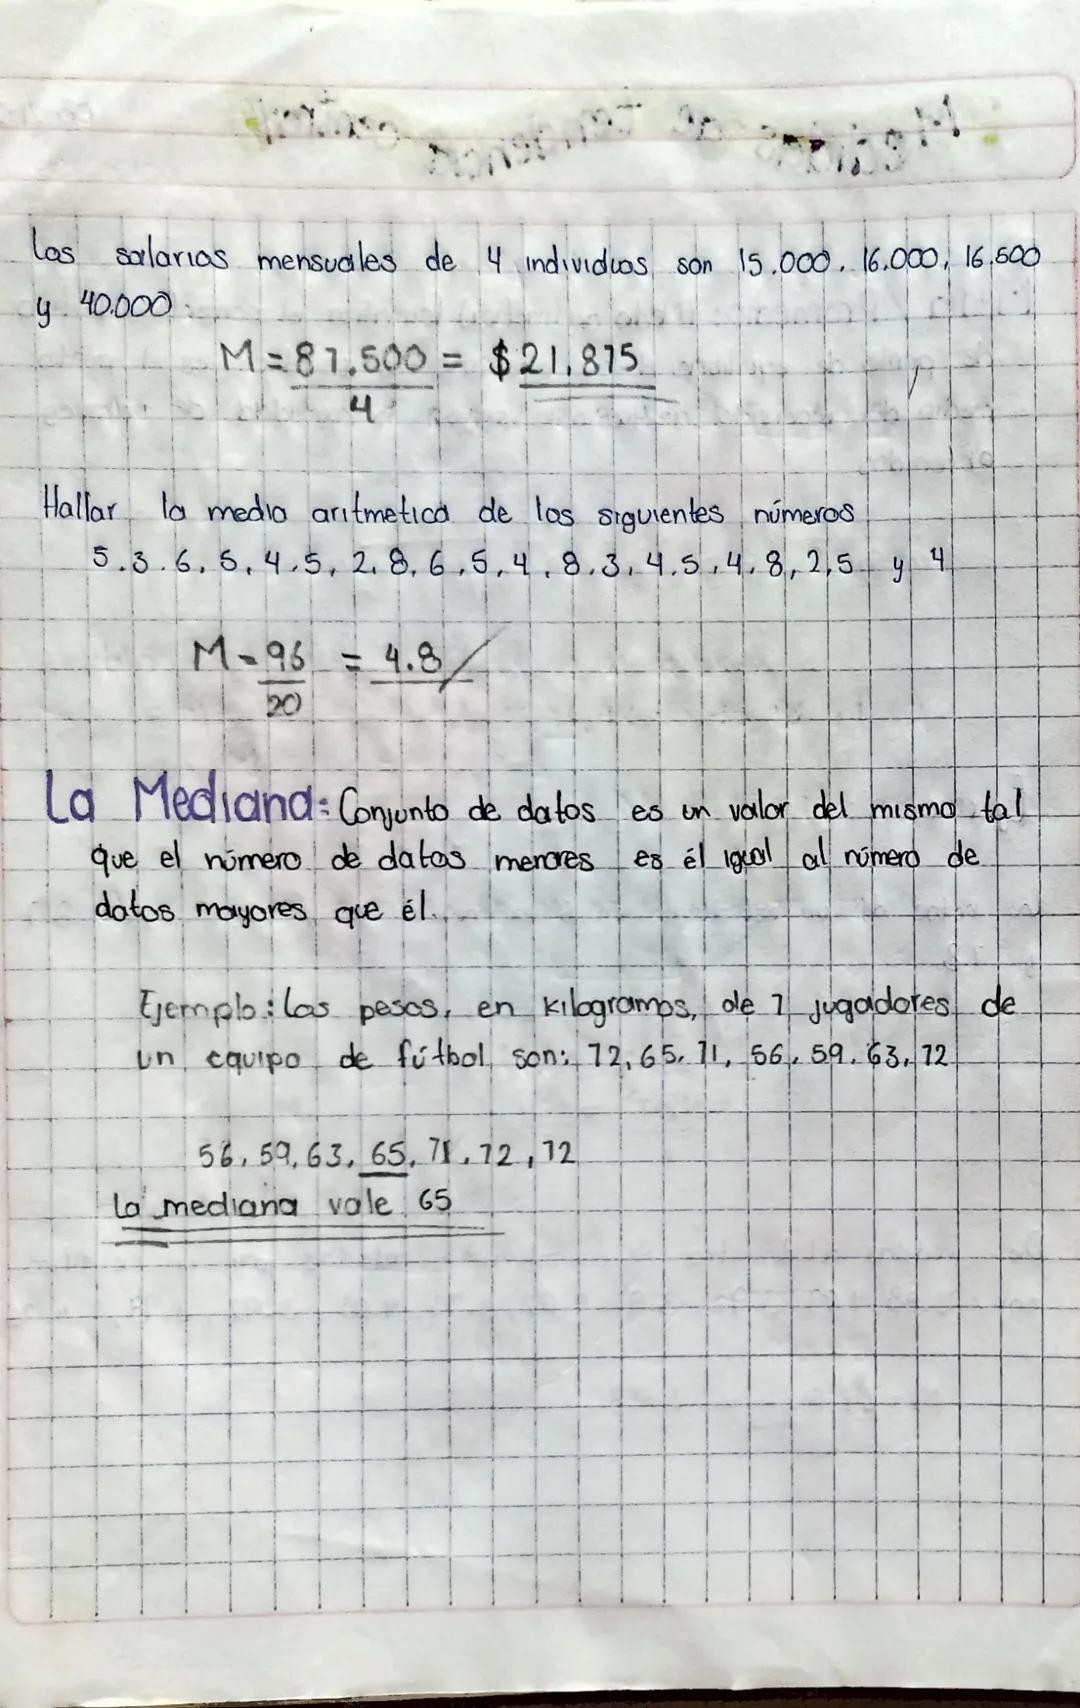 Los salarios mensuales de 4 individuos son 15.000. 16.000, 16.500
y 40.000
M = 87.500 = $21,875
4
Hallar la media aritmetica de los siguientes números
5.3.6,5,4,5,2,8,6,5,4,8.3,4.5,4,8,2,5 y 4
M = 96 = 4.8
20
La Mediana: Conjunto de datos es un valor del mismo tal
que el número de datos menores es él igual al número de
datos mayores que él.
Ejemplo: Los pesos, en kilogramos, de 7 jugadores de
un equipo de fútbol son: 72, 65, 71, 56, 59, 63, 72
56, 59, 63, 65, 71, 72, 72
La mediana vale 65